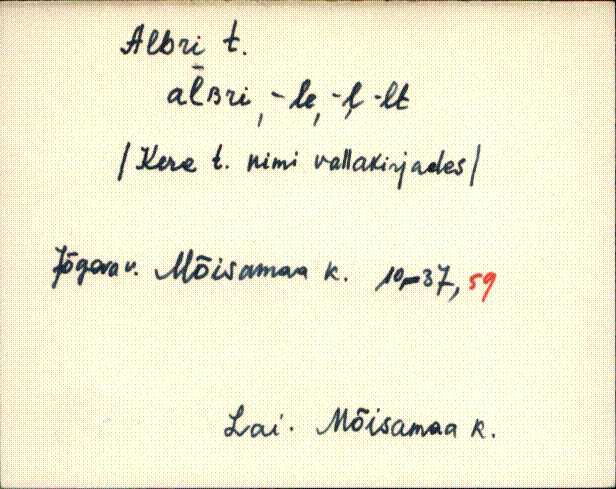 Albri t.
al̄ʙri, -le, -l̦ -lt
/Kere t. nimi vallakirjades/
Jõgeva v. Mõisamaa k. 10-37, 59
Lai. Mõisamaa k.